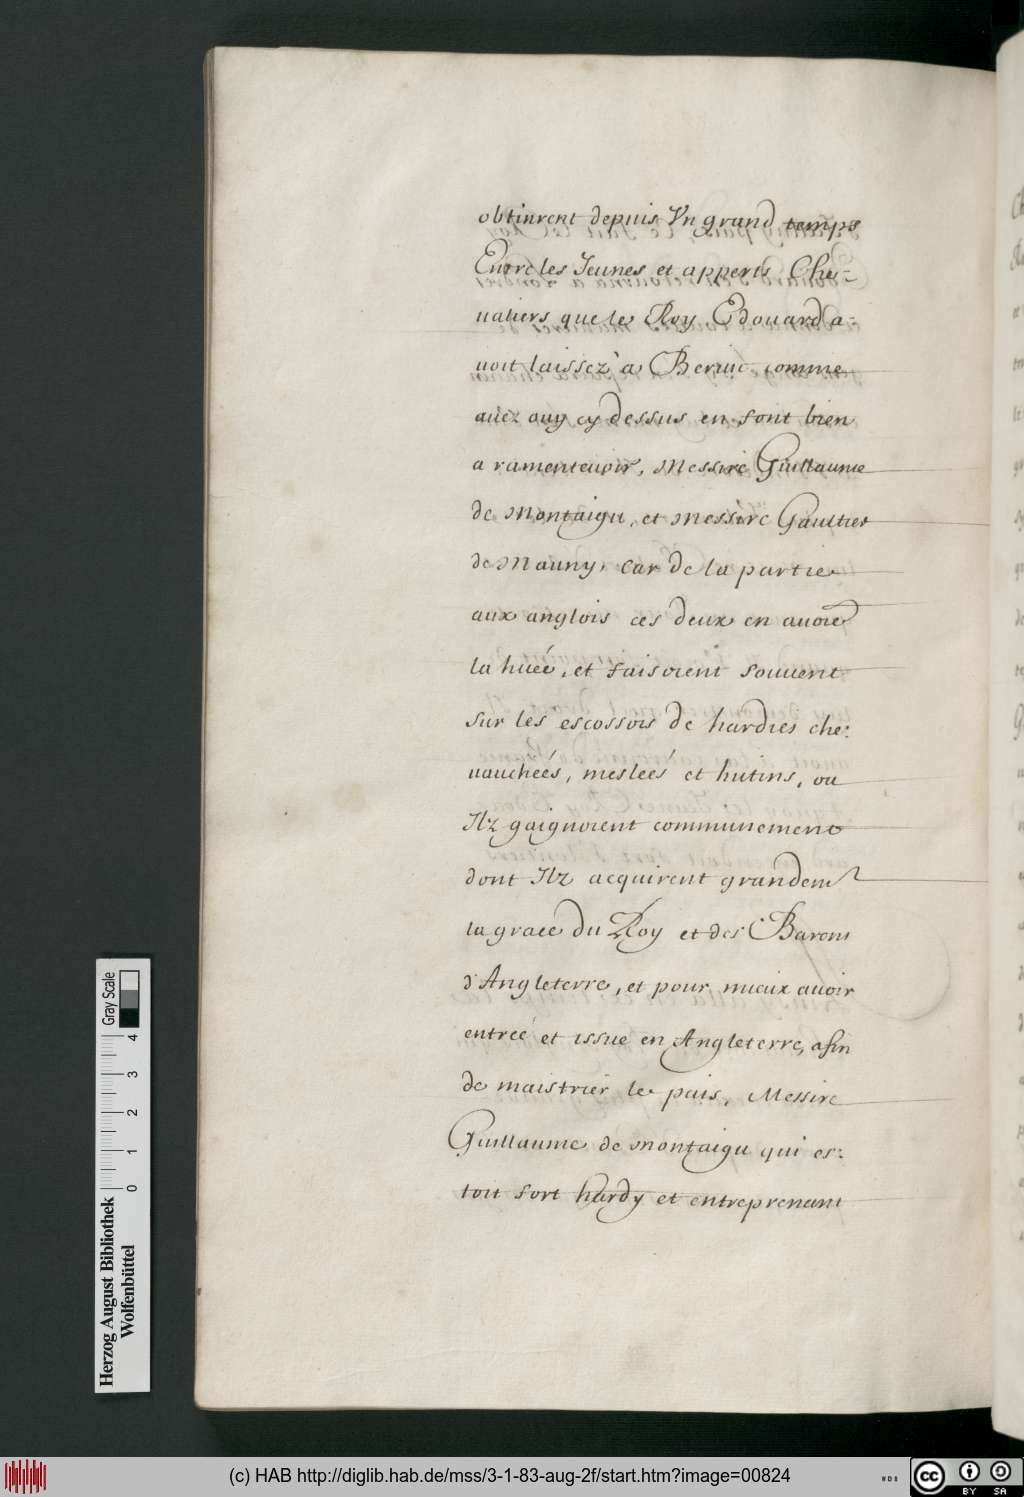 obtinrent depuis Vn grand temps
Entre les Jeunes et apperts Che=
ualiers que le Roy Edouard a=
uoit laissez a Beruic comme
auez ouy cy dessus en sont bien
a ramenteuoir, Messire Guillaume
de Montaigu, et Messire Gaultier
de Mauny, Car de la partie
aux anglois ces deux en auoiẽ
la hueé, et faisoient souuent
sur les escossois de hardies che:
uaucheés, mesleés et hutins, ou
Ilz gaignoient communement
dont Ilz acquirent grandem̃
la grace du Roy et des Barons
d'Angleterre, et pour mieux auoir
entreé et issue en Angleterre, afin
de maistrier le pais, Messire
Guillaume de Montaigu qui es:
toit fort hardy et entreprenant
Herzog August Bibliothek
Wolfenbüttel
0 1 2 3 4
Gray Scale
(c) HAB http://diglib.hab.de/mss/3-1-83-aug-2f/start.htm?image=00824
WDB
cc BY SA